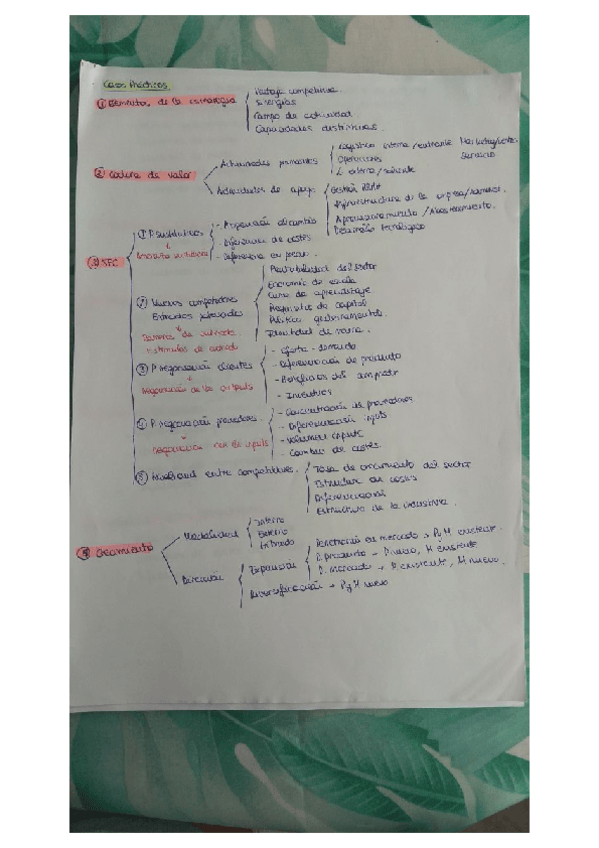 Casos Prácticos.
① Elementos de la estrategia
Ventaja competitiva.
Sinergias
Campo de actividad
Capacidades distintivas.
② Cadena de valor
Actividades primarias
Logística interna/entrante Marketing/ventas
Operaciones Servicio
L. externa/saliente
Actividades de apoyo
Gestión RRHH
Infraestructura de la empresa
Aprovisionamiento / Abastecimiento.
Desarrollo tecnológico
③ SEC
① P. sustitutivos
- Propensión al cambio
- Diferencia de costes
- Diferencia en precio
② Nuevos competidores
Entrantes potenciales
Barreras de entrada
Rentabilidad del sector
Economía de escala
Curva de aprendizaje
Requisitos de capital
Política gubernamental
Identidad de marca.
③ P. negociación clientes
Negociación de los outputs
- Oferta - demanda
- Diferenciación de producto
- Beneficios del comprador
- Incentivos
④ P. negociación proveedores.
negociación de inputs
- Concentración de proveedores
- Diferenciación inputs
- Volumen inputs
- Cambio de costes
⑤ Rivalidad entre competidores.
Tasa de crecimiento del sector
Estructura de costes
Diferenciación
Estructura de la industria.
④ Crecimiento
Modalidad
Interno
Externo
Híbrido
Dirección
Expansión
Penetración en mercado → P y M existente.
D. producto → P. nuevo, M existente
D. mercado → P existente, M nuevo.
Diversificación → P y M nuevo